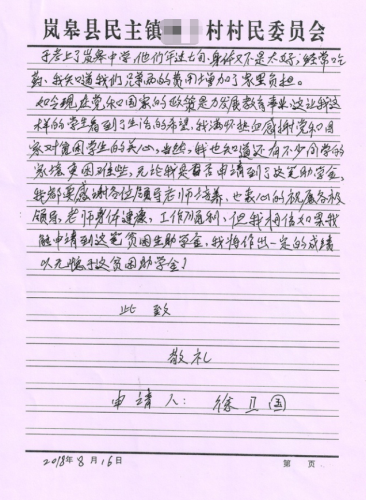 岚皋县民主镇 村村民委员会
于考上了岚皋中学，他们年过七旬，身体又不是太好，经常吃
药，我知道我们兄弟的费用增加了家里负担。
如今现在党和国家的政策是力发展教育事业，这让我这
样的学生看到了生活的希望，我满怀热血感谢党和国
家对贫困学生的关心，当然，我也知道还有不少同学的
家境更困难些，无论我是否申请到了这笔助学金，
我都要感谢各位领导老师培养，也衷心的祝愿各校
领导，老师身体健康，工作顺利，但我相信如果我
能申请到这笔贫困生助学金，我将作出一定的成绩
以无愧于这贫困助学金！
此致
敬礼
申请人：徐卫国
2018年8月16日
第 页